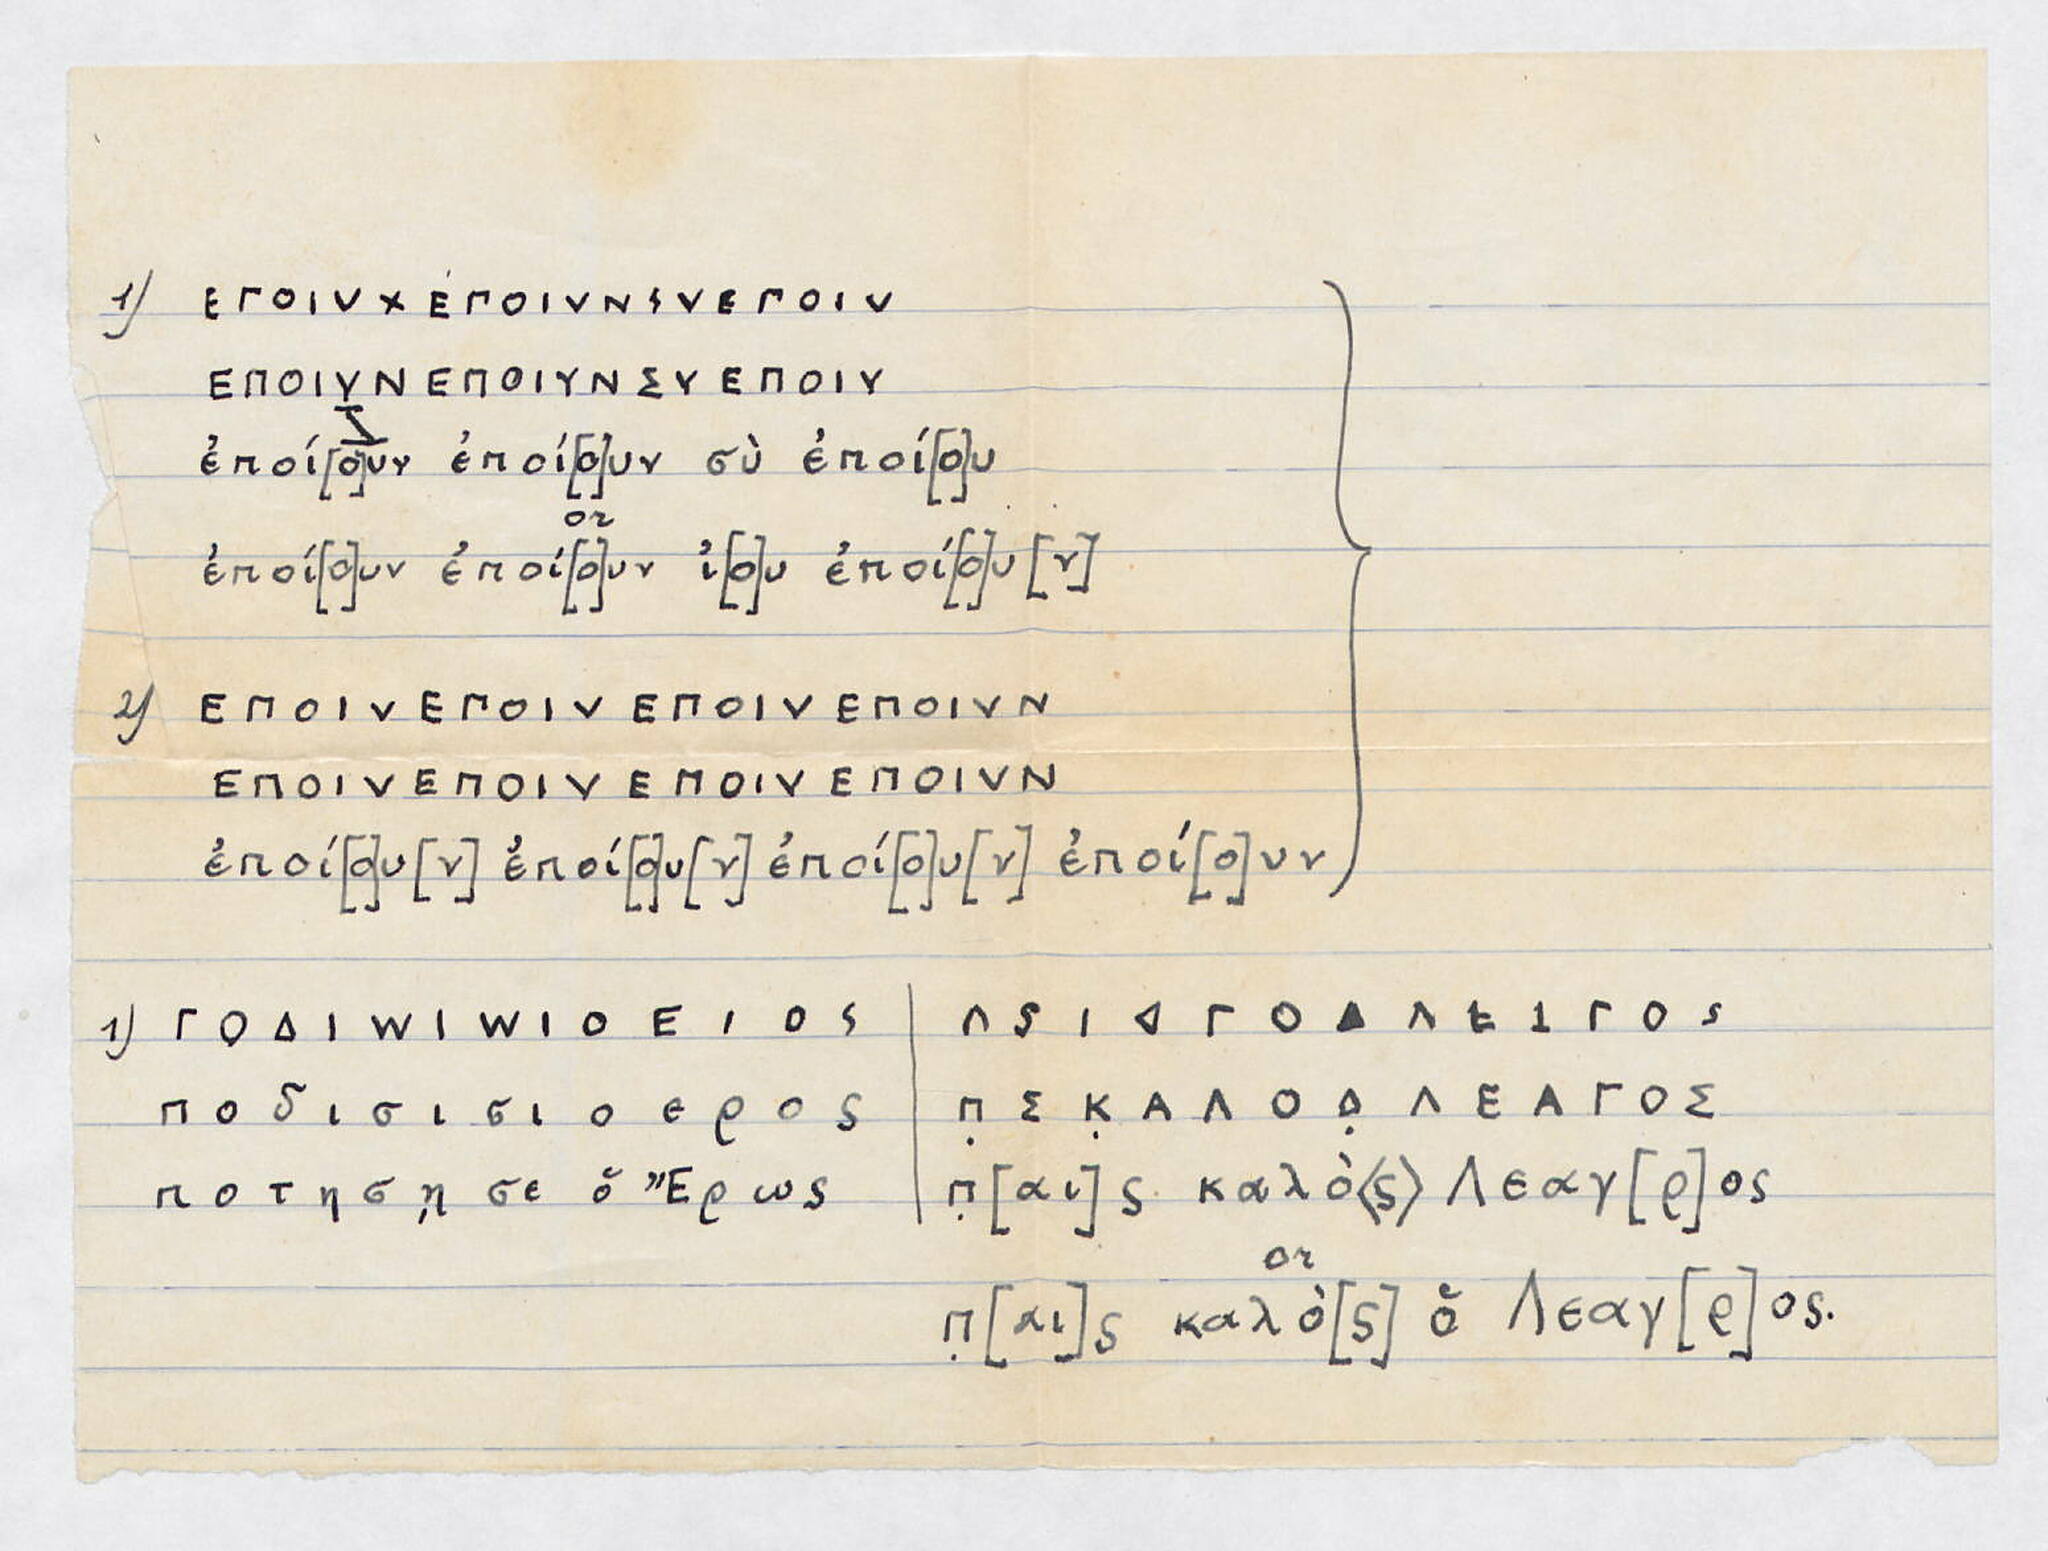 1) ΕΓΟΙVΧΕΓΟΙVΝSVΕΓΟΙV
ΕΠΟΙΥΝΕΠΟΙΥΝΣΥΕΠΟΙΥ
ἐποί[ο]υν ἐποί[ο]υν σὺ ἐποί[ο]υ
or
ἐποί[ο]υν ἐποί[ο]υν ἰ[ο]υ ἐποί[ο]υ[ν]
2) ΕΠΟΙVΕΓΟΙVΕΠΟΙVΕΠΟΙVΝ
ΕΠΟΙVΕΠΟΙVΕΠΟΙVΕΠΟΙVΝ
ἐποί[ο]υ[ν] ἐποί[ο]υ[ν] ἐποί[ο]υ[ν] ἐποί[ο]υν
1) ΓΟΔΙWΙWΙΟΕΙΟS
ποδισισιοερος
ποτησῃ σε ὅ Ἔρως
Π̣ΣΚ̣ΑΛΟΔ̣ΛΕΑΓΟΣ
π̣[αι]ς καλὸ⟨ς⟩ Λεαγ[ρ]ος
or
π̣[αι]ς καλὸ[ς] ὅ Λεαγ[ρ]ος.